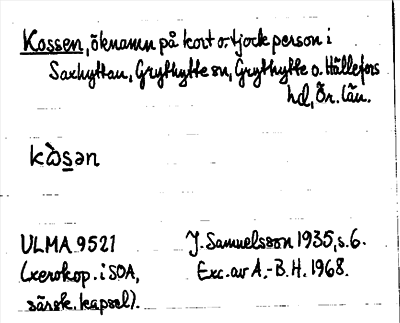 Kossen, öknamn på kort o. tjock person i
Saxhyttan, Grythytte sn, Grythytte o. Hällefors
hd, Ör. län.
kòsən
ULMA 9521
(xerokop. i SOA,
särsk. kapsel).
J. Samuelsson 1935, s. 6.
Exc. av A.-B. H. 1968.